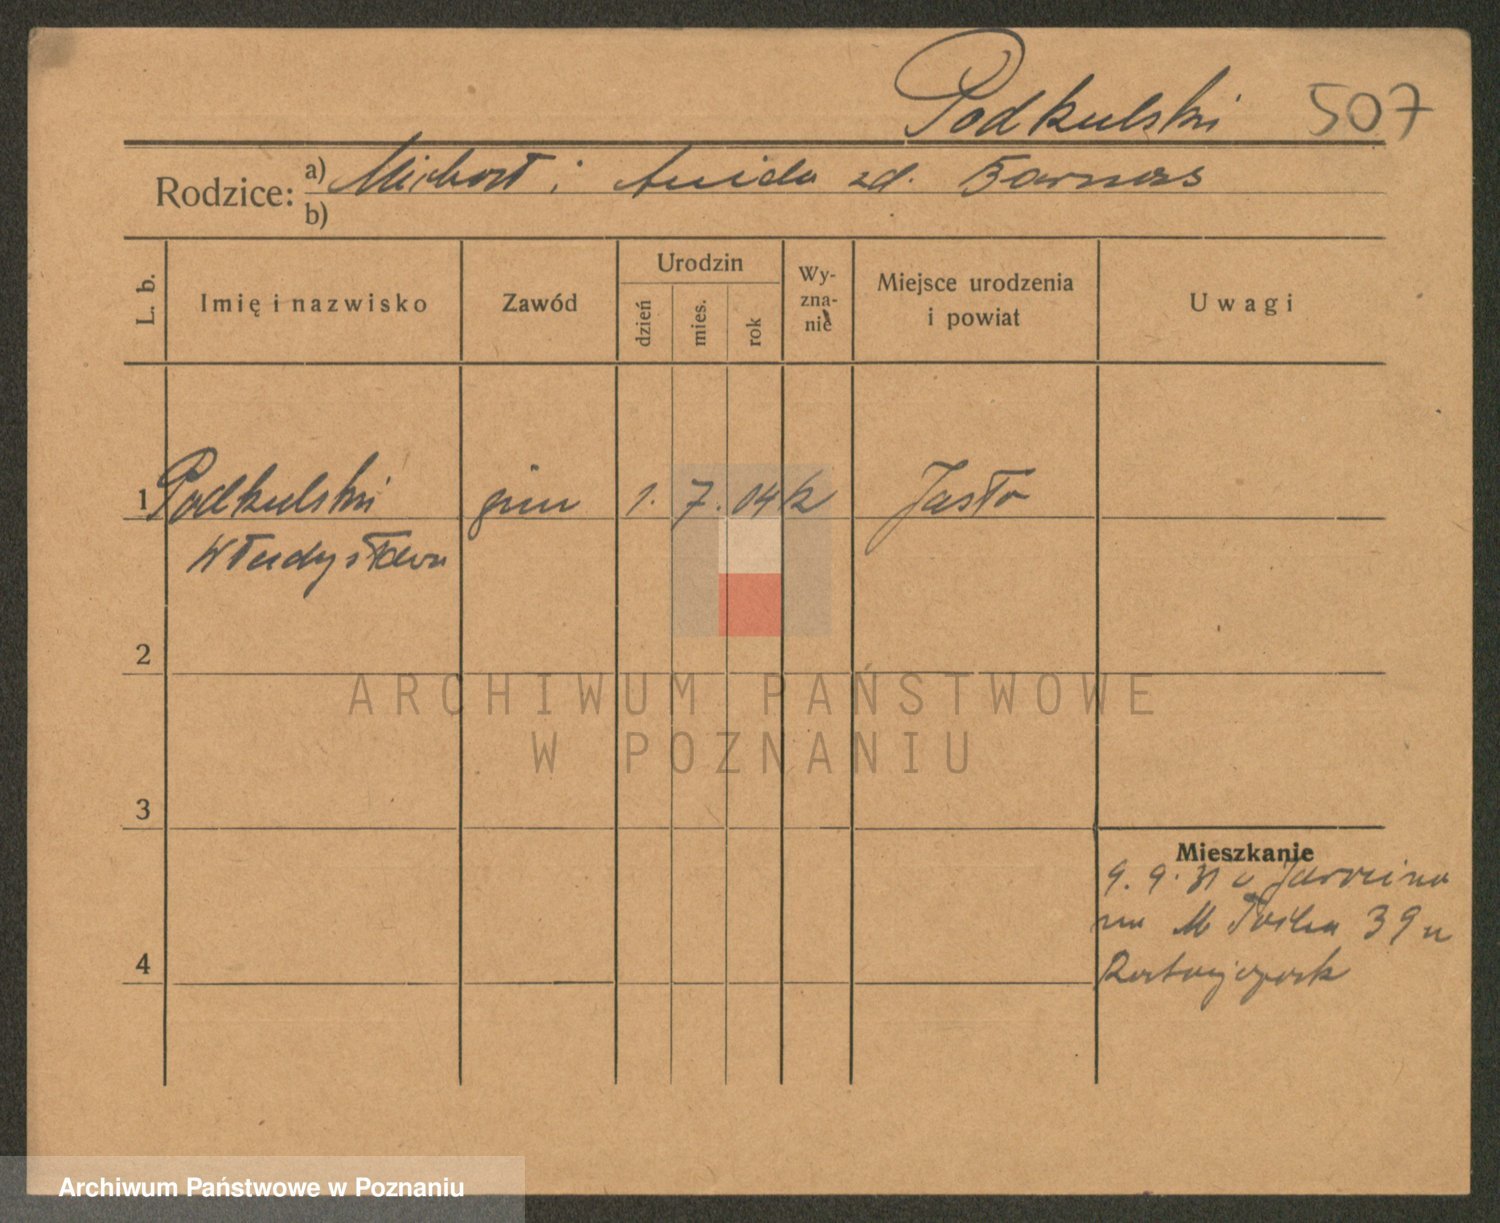 Podkulski 507
Rodzice: a) Michał i Aniela zd. Barnas
b)
L. b. Imię i nazwisko Zawód Urodzin dzień mies. rok Wy-zna-nie Miejsce urodzenia i powiat Uwagi
1 Podkulski 1. 7. 04 k Jasło
Władysław
2
ARCHIWUM PAŃSTWOWE
W POZNANIU
3
Mieszkanie
9. 9. 31 z Jarocina
na 39 u
4
Archiwum Państwowe w Poznaniu